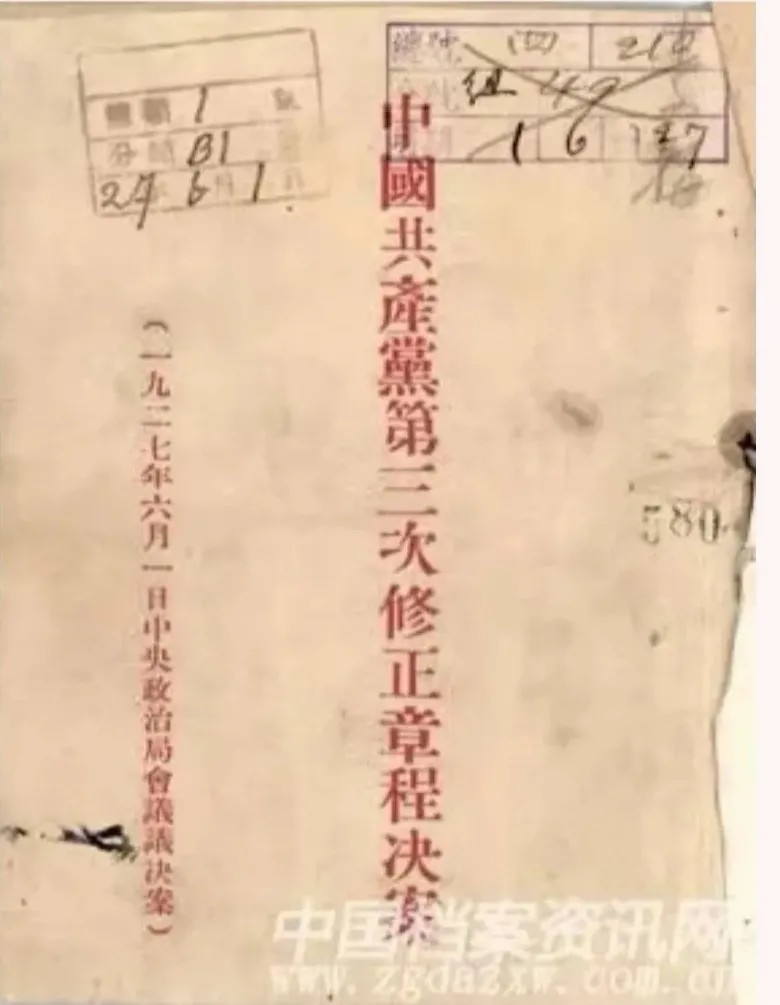 中國共產黨第三次修正章程决案
(一九二七年六月一日中央政治局會議議决案)
總號 四
組 42
1 6 127
1
分 B1
24 6月1
580
中国档案资讯网
www.zgdazxw.com.cn